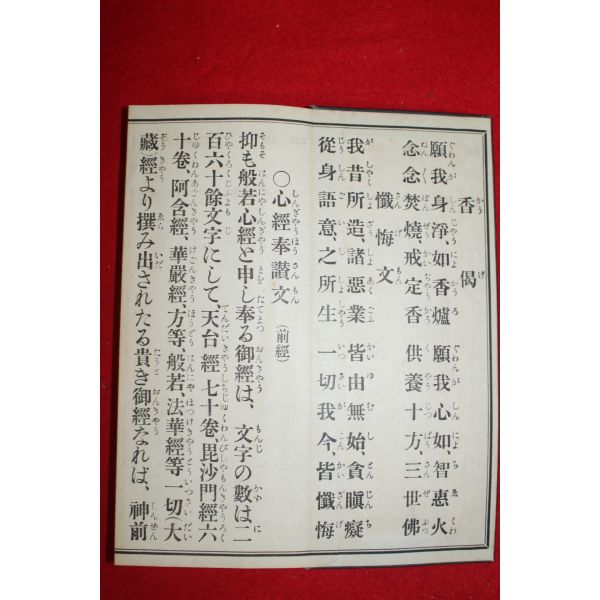 香偈
願我身淨、如香爐　願我心如、智惠火
念念焚燒、戒定香　供養十方、三世佛
懺悔文
我昔所造、諸惡業　皆由無始、貪瞋癡
從身語意、之所生　一切我今、皆懺悔
〇心經奉讃文（前經）
抑も般若心經と申し奉る御經は、文字の數は二
百六十餘文字にして、天台經七十卷、毘沙門經六
十卷、阿含經、華嚴經、方等、般若、法華經等一切（大
藏經より撰み出されたる貴き御經なれば、神前